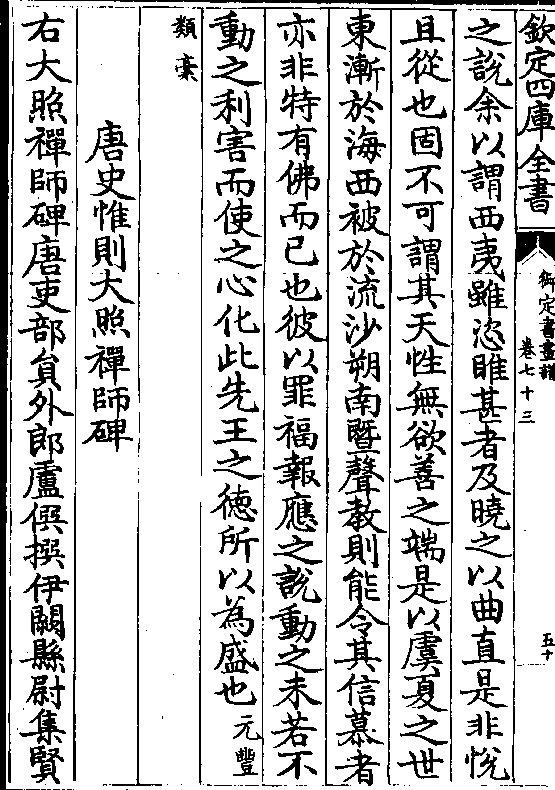 欽定四庫全書
御定書畫譜
卷七十三
五十
之說余以謂西夷雖恣睢甚者及曉之以曲直是非恱
且從也固不可謂其天性無欲善之端是以虞夏之世
東漸於海西被於流沙朔南曁聲教則能令其信慕者
亦非特有佛而已也彼以罪福報應之說動之未若不
動之利害而使之心化此先王之徳所以為盛也元豐
類槀
唐史惟則大照禪師碑
右大照禪師碑唐吏部員外郎盧僎撰伊闕縣尉集賢